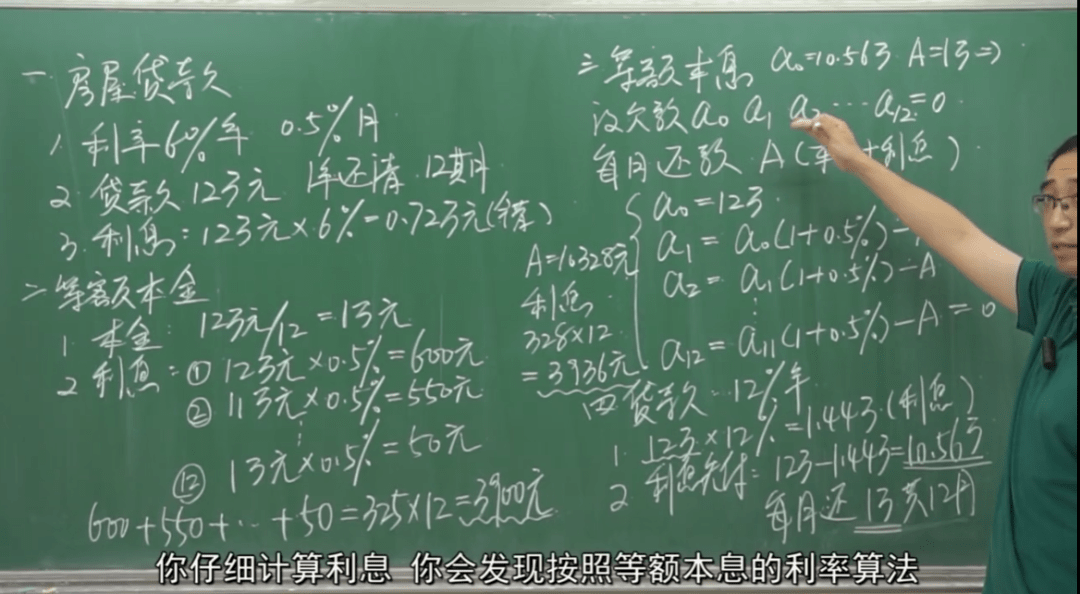 一 房屋贷款
1. 利率6%/年 0.5%/月
2. 贷款12万元 1年还清 12期
3. 利息:12万元×6%=0.72万元(错)
二 等额本金
1. 本金: 12万元/12=1万元
2. 利息:① 12万元×0.5%=600元
② 11万元×0.5%=550元
⋮
⑫ 1万元×0.5%=50元
600+550+…+50=325×12=3900元
三 等额本息 a₀=10.56万 A=1万⇒
设欠款 a₀ a₁ a₂ … a₁₂=0
每月还款 A(本 +利息)
a₀=12万
a₁=a₀(1+0.5%)-
a₂=a₁(1+0.5%)-A
⋮
a₁₂=a₁₁(1+0.5%)-A=0
A=10328元
利息
328×12
=3936元
四 贷款 12%/年
1. 12万×12%=1.44万(利息)
2. 利息先付:12万-1.44万=10.56万
每月还1万共12月
你仔细计算利息 你会发现按照等额本息的利率算法